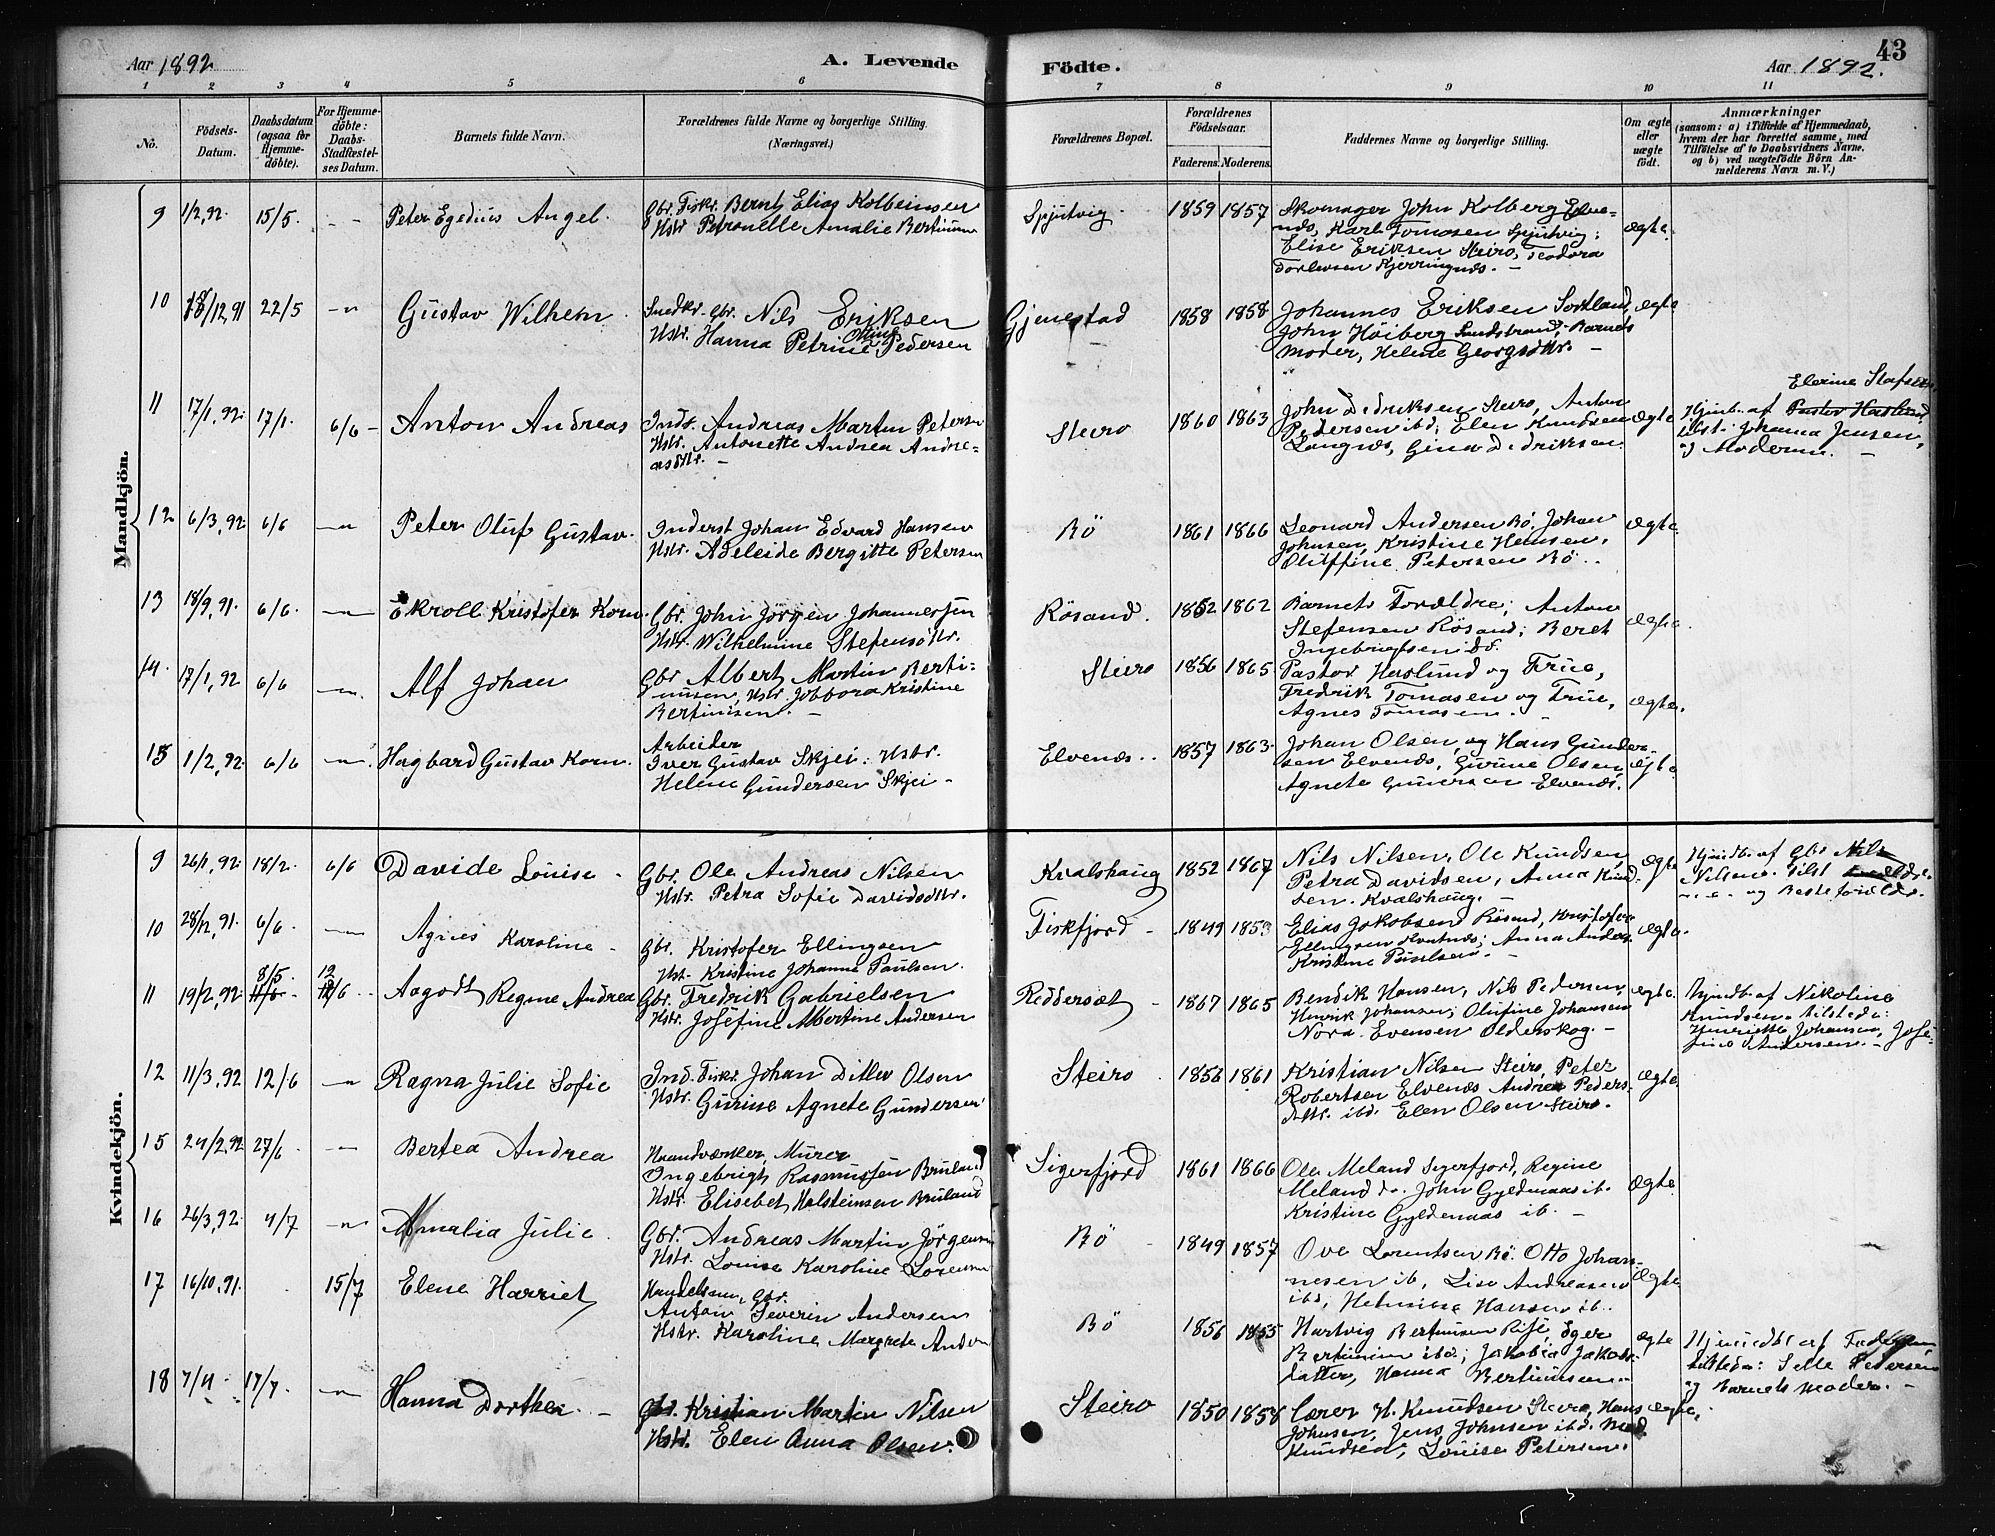 Aar 1892
A. Levende
Födte.
Aar 1892.
43
1 2 3 4 5 6 7 8 9 10 11
No.
Födsels-
Datum.
Daabsdatum
(ogsaa for
Hjemme-
döbte).
For Hjemme-
döbte:
Daabs-
Stadfæstel-
ses Datum.
Barnets fulde Navn.
Forældrenes fulde Navne og borgerlige Stilling.
(Næringsvei.)
Forældrenes Bopæl.
Forældrenes
Födselsaar.
Faderens. Moderens.
Faddernes Navne og borgerlige Stilling.
Om ægte
eller
uægte
födt.
Anmærkninger
(saasom: a) i Tilfælde af Hjemmedaab,
hvem der har forrettet samme, med
Tilföielse af to Daabsvidners Navne,
og b) ved uægtefödte Börn An-
melderens Navn m. V.)
Mandkjön.
9 1/2,92. 15/5. - Peter Egedius Angel.
Gbr. Fiskr. Bernt Elias Kolbeinsen
Hstr. Petronelle Amalie Bertinusen
Spjutvig. 1859 1857
Skomager John Kolberg Elve-
næs, Karl Tomasen Spjutvig;
Elise Eriksen Steiro, Teodora
Torleusen Kjerringnæs. -
ægte.
10 18/12,91 22/5 -"- Gustav Wilhelm
Snedkr. Gbr. Nils Eriksen
Hstr. Hanna Petrine Otting Pedersen
Gjenestad 1858 1858
Johannes Eriksen Sortland,
John Höiberg Sandstrand; Barnets
Moder, Helene Georgsdttr. -
ægte
11 17/1,92. 17/1. 6/6 - Anton Andreas
Inds. Andreas Martin Petersen
Hstr. Antonette Andrea Andre-
asdttr. -
Steiro 1860 1863
John Didriksen Steiro, Anton
Pedersen ibd; Elen Knudsen
Langnæs, Gina Didriksen
ægte
Elerine Olafsen
Hjmdb. af Pastor Haslund
tilst. Johanna Jensen,
og Moderen. -
12 6/3,92. 6/6 -"- Peter Oluf Gustav.
Inderst Johan Edvard Hansen
Hstr. Adeleide Bergitte Petersen
Bö 1861 1866
Leonard Andersen Bö, Johan
Johnsen, Kristine Hansen,
Oluffine Petersen Bö.
ægte.
13 18/9,91. 6/6. -"- Ekroll Kristofer Korn.
Gbr. John Jörgen Johannessen
Hstr. Wilhelmine Stefensdttr.
Rösand. 1852 1862
Barnets Forældre; Anton
Stefensen Rösand; Beret
Ingebrigtsen do.
ægte.
14. 17/1,92 6/6 -"-. Alf Johan
Gbr Albert Martin Berti-
nusen, Hstr. Jobbora Kristine
Bertinusen. -
Steiro 1856 1865
Pastor Haslund og Frue,
Fredrik Tomasen og Frue,
Agnes Tomasen. -
ægte.
15 1/2,92. 6/6 -"- Hagbard Gustav Korn.
Arbeider
Iver Gustav Skjei: Hstr.
Helene Gundersen Skjei -
Elvenæs. 1857 1863
Johan Olsen, og Hans Gunder-
sen Elvenæs, Gurine Olsen,
Agnete Gundersen Elvenæs.
ægte
Kvindekjön.
9 26/1,92. 18/2. 6/6 Davide Louise -
Gbr. Ole Andreas Nilsen
Hstr. Petra Sofie Davidsdttr.
Kvalshaug 1852 1867
Nils Nilsen, Ole Knudsen,
Petra Davidsen, Anna Knud-
sen. Kvalshaug. -
ægte
Hjmdb. af Gbr. Nils
Nilsen. Tilst.
og Besteforældre.
10 28/12,91. 6/6. Agnes Karoline -
Gbr. Kristofer Ellingsen
Hst. Kristine Johanna Paulsen.
Fiskfjord - 1849 1853
Elias Jakobsen Rösand, Kristofer
Ellingsen Kvatnæs; Anna Anders.
Kristine Paulsen. -
ægte.
11 19/2,92. 8/5 11/6. 12/6 - Aagodt Regine Andrea
Gbr. Fredrik Gabrielsen
Hstr. Josefine Martine Andersen
Reddersæt - 1867 1865
Bendik Hansen, Nils Pedersen,
Henrik Johansen; Olufine Johansen
Nora Evensen Olderskog. -
ægte.
Hjmdb. af Nikoline
Knudsen. tilstede:
Henriette Johansen, Jose-
fine Andersen. -
12 11/3,92 12/6 -"- Ragna Julie Sofie
Ind. Fiskr. Johan Ditlev Olsen
Hstr. Gurine Agnete Gundersen
Steiro 1856 1861
Kristian Nilsen Steiro, Peter
Robertsen Elvenæs Andrea Peders-
dttr. ibd. Elen Olsen Steiro.
ægte.
15 24/2,92 27/6 -"- Bertea Andrea
Haandværker, Murer
Ingebrigt Rasmussen Bruland
Hstr. Elisebet Halsteinsen Bruland
Sigerfjord 1861 1866
Ole Meland Sigerfjord, Regine
Meland do. John Gyldenaas ib.
Kristine Gyldenaas ib. -
ægte
16 26/3,92. 4/7 -"- Amalia Julie.
Gbr. Andreas Martin Jörgensen
Hstr. Louise Karoline Lorensen
Bö - 1849 1857
Ove Lorentsen Bö. Otto Johan-
nesen ib, Lise Andreasen
ibd, Helmine Hansen ib.
ægte
17 16/10,91. 15/7 Elene Harriet
Handelsm, Gbr.
Anton Severin Andersen
Hstr. Karoline Margrete Andersen
Bö 1856 1855
Hartvig Bertinusen Rise, Eger
Bertinusen ibd; Jakobia Jakobs-
datter, Hanna Bertinusen. -
ægte
Hjemmedbt af Faderen,
tilstede: Pedersen
og barnets moder. -
18 7/4. 17/7. -"- Hanna Dorthea. -
Gbr. Kristian Martin Nilsen
Hstr. Elen Anna Olsen.
Steiro 1850 1858
Lærer H. Knudsen Steiro, Hans
Johnsen, Jens Johnsen ibd.
Knudsen, Louise Petersen.
ægte,